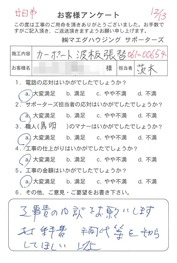 廿日市
12/13
お客様アンケート
この度は工事のご用命を頂きありがとうございました。お手数で
すがご記入頂き、ご返送頂きますようお願い申し上げます。
㈱マエダハウジング サポーターズ
施工内容 カーポート 波板張替 061-00654
お名前 様 担当者 茨木
1. 電話の対応はいかがでしたでしょうか?
a. 大変満足 b. 満足 c. やや不満 d. 不満
2. サポーターズ担当者の応対はいかがでしたでしょうか?
a. 大変満足 b. 満足 c. やや不満 d. 不満
3. 職人 のマナーはいかがでしたでしょうか?
a. 大変満足 b. 満足 c. やや不満 d. 不満
4. 工事の仕上がりはいかがでしたでしょうか?
a. 大変満足 b. 満足 c. やや不満 d. 不満
5.
a. 大変満足 b. 満足 c. やや不満 d. 不満
6. その他、ご意見・ご要望をお書き下さい。
工事費の内訳をお願いします
材料費
してほしい